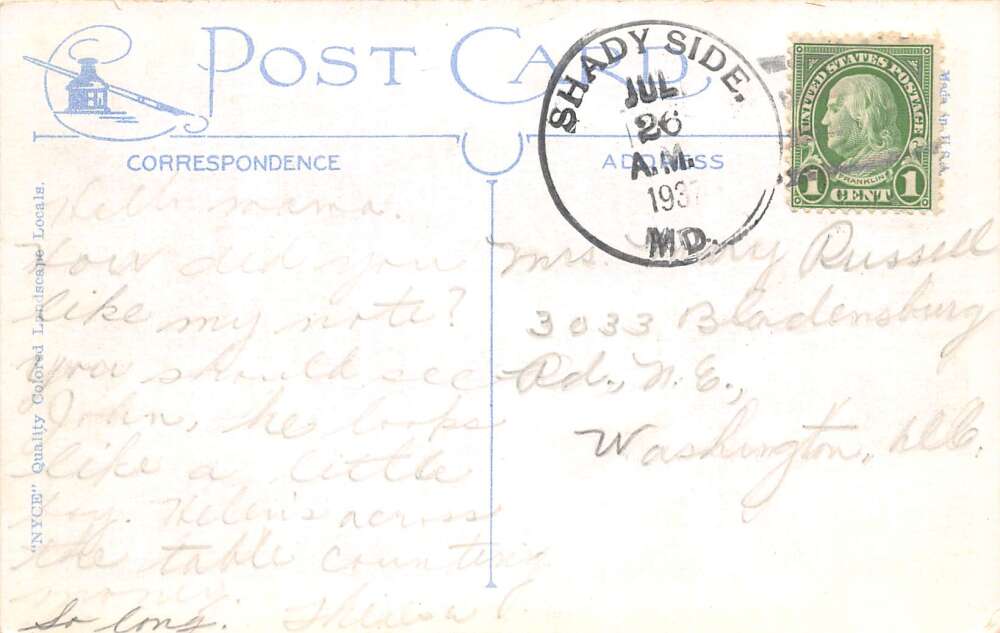 POST CARD
CORRESPONDENCE
ADDRESS
SHADY SIDE.
JUL
26
A.M.
193
MD.
UNITED STATES POSTAGE
FRANKLIN
1 CENT 1
Made in U.S.A.
"NYCE" Quality Colored Landscape Locals.
mama.
How did you
like my note?
you should see
John, he looks
like a little
boy. Helen's across
the table counting
money.
So long.
Mrs. Russell
3033 Bladensburg
Rd., N.E.,
Washington, D.C.